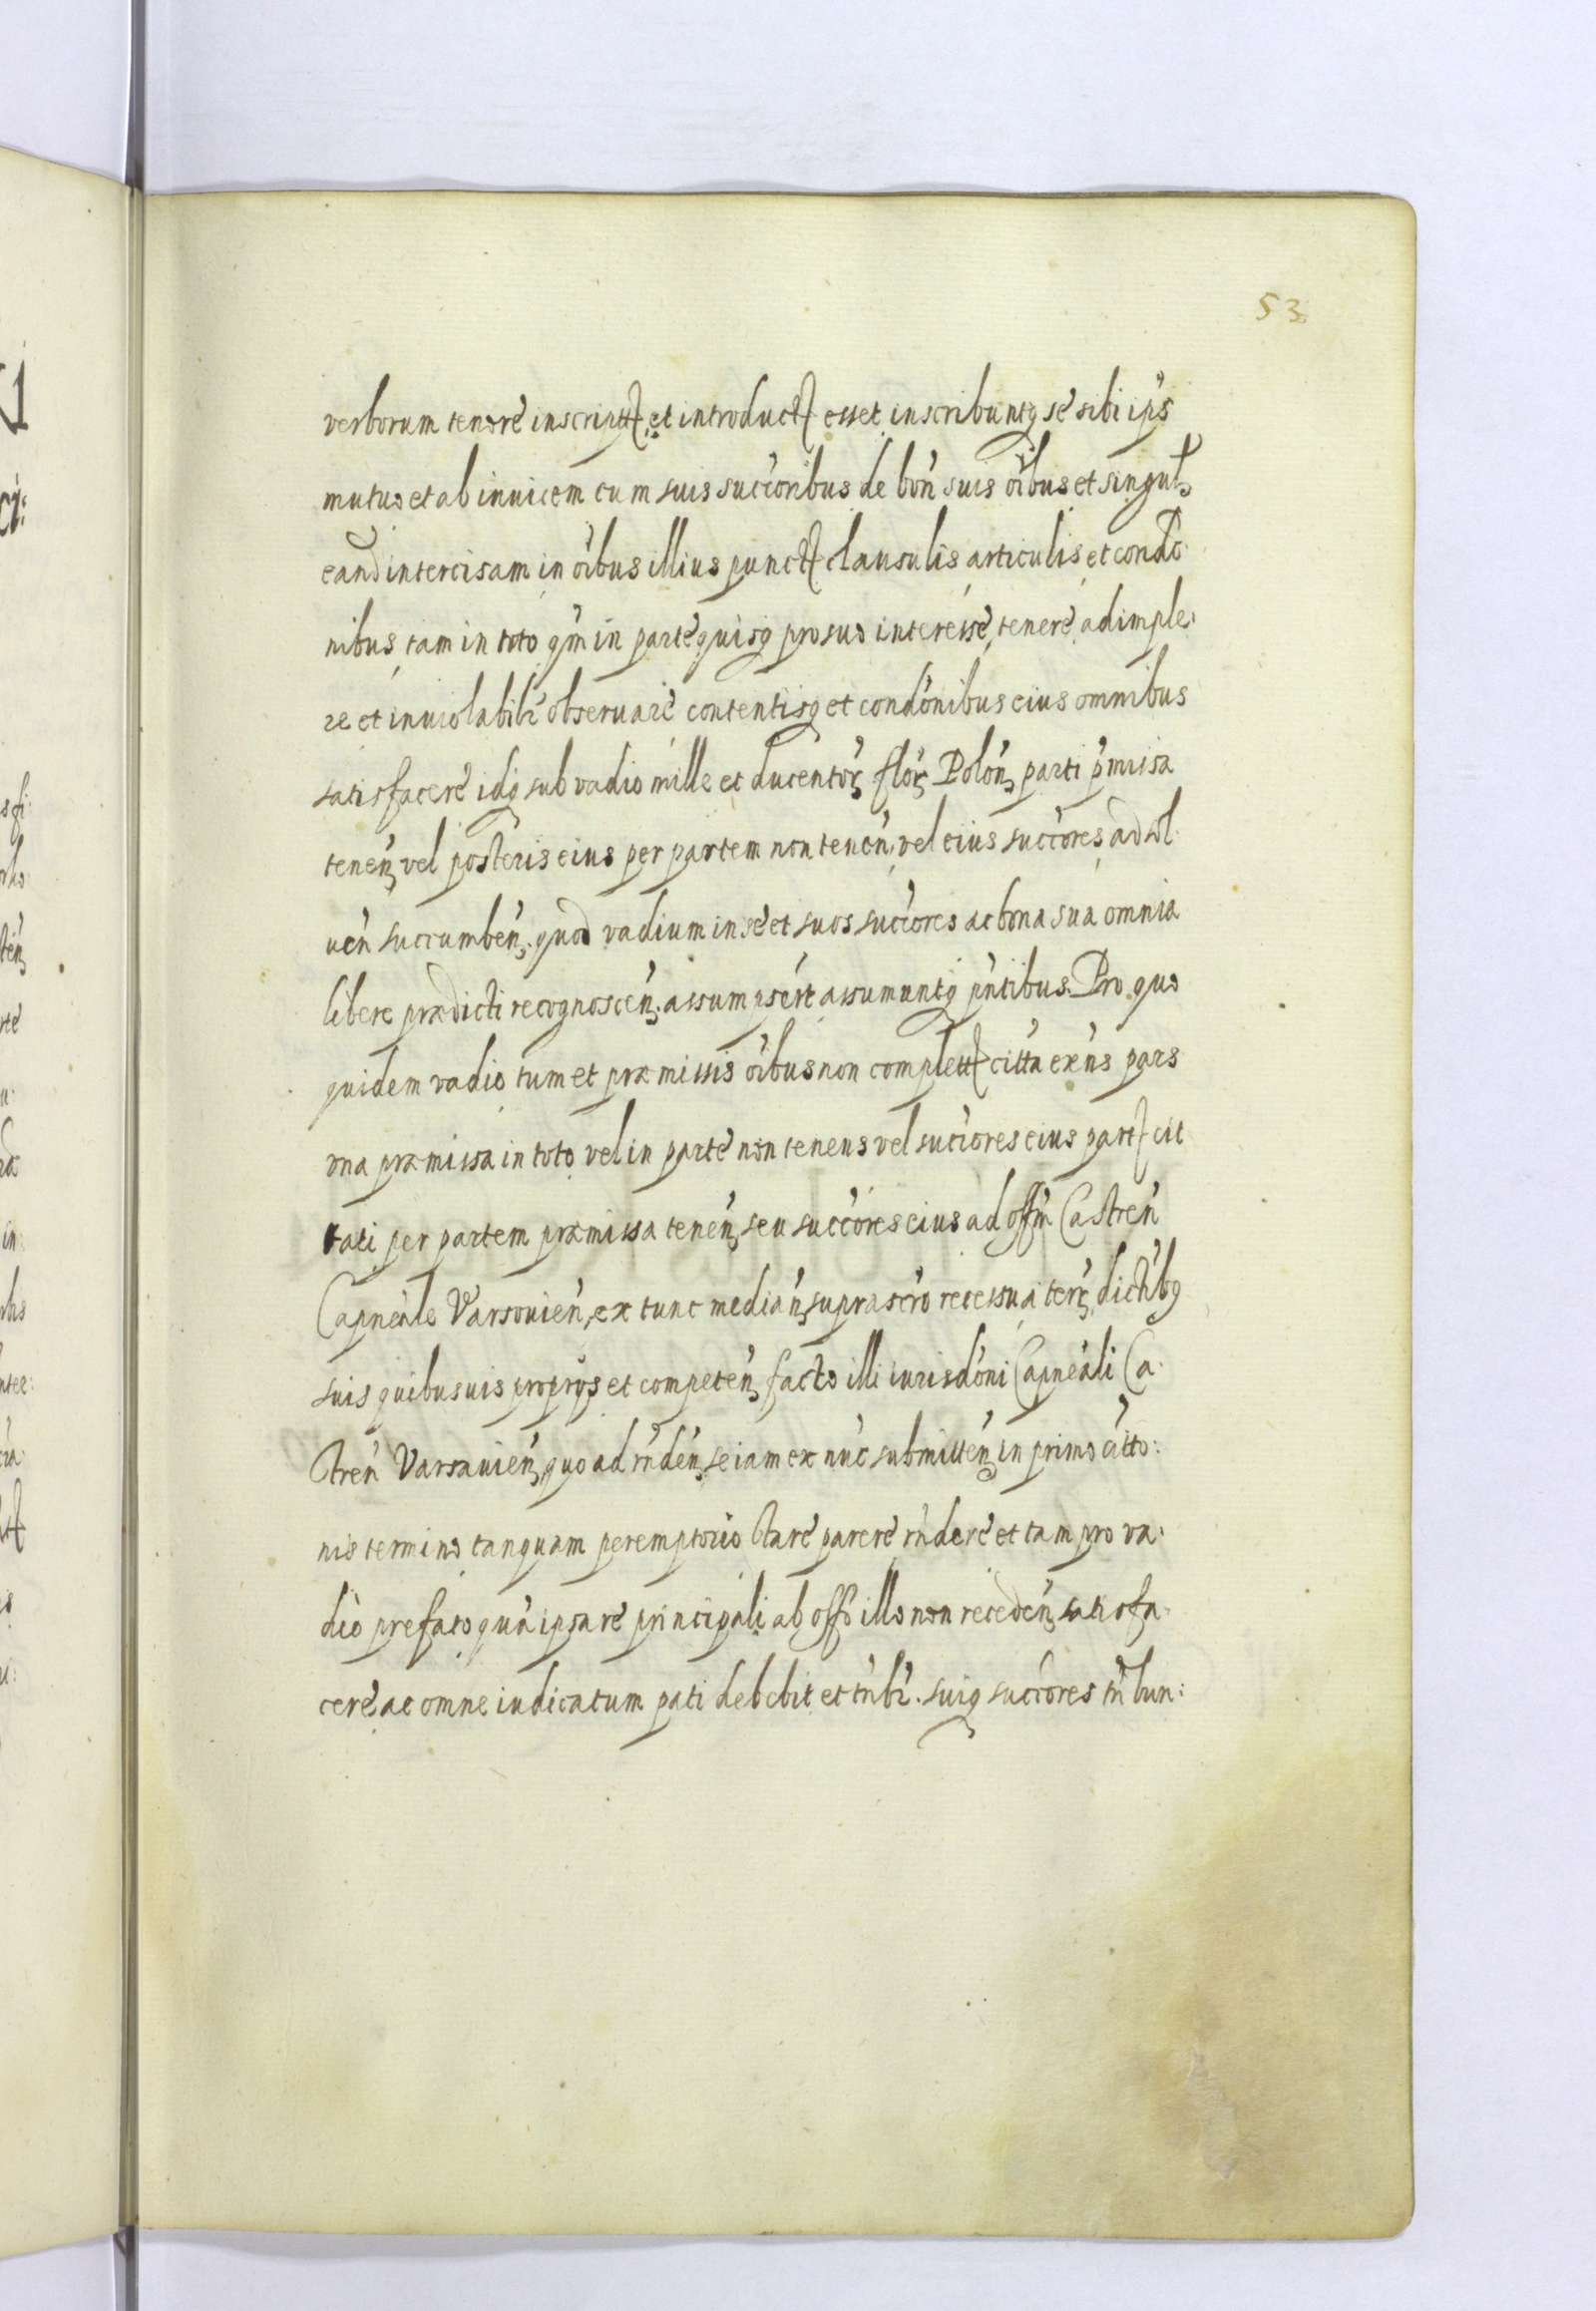 53
verborum tenore inscript et introduct esset inscribuntq se sibi ips
mutuo et ab inuicem cum suis succoribus de bon suis oibus et singul
eand intercisam in oibus illius punct clausulis articulis et condo
nibus tam in toto qm in parte quisq pro suo interesse tenere adimple:
re et inuiolabilr obseruare contentisq et condonibus eius omnibus
satisfacere idq sub vadio mille et ducentor flor Polon parti pmissa
tenen vel posteris eius per partem non tenen vel eius succores ad sol
uen succumben quod vadium in se et suos succores ac bona sua omnia
libere prædicti recognoscen assumpsert assumuntq pntibus Pro quo
quidem vadio tum et præmissis oibus non complett citta exns pars
vna præmissa in toto vel in parte non tenens vel succores eius part cit
tati per partem præmissa tenen seu succores eius ad offm Castren
Capneale Varsouien, ex tunc median suprascro recessu a terr dictibq
suis quibusuis proprys et competen facto illi iurisdoni Capneali Ca:
stren Varsauien quo ad rnden se iam ex nuc submitten in primo citto:
nis termino tanquam peremptorio stare parere rndere et tam pro va:
dio prefato qua ipsa re principali ab offo illo non receden satisfa:
cere ac omne iudicatum pati debebit et tnbr. suiq succores tn bun: